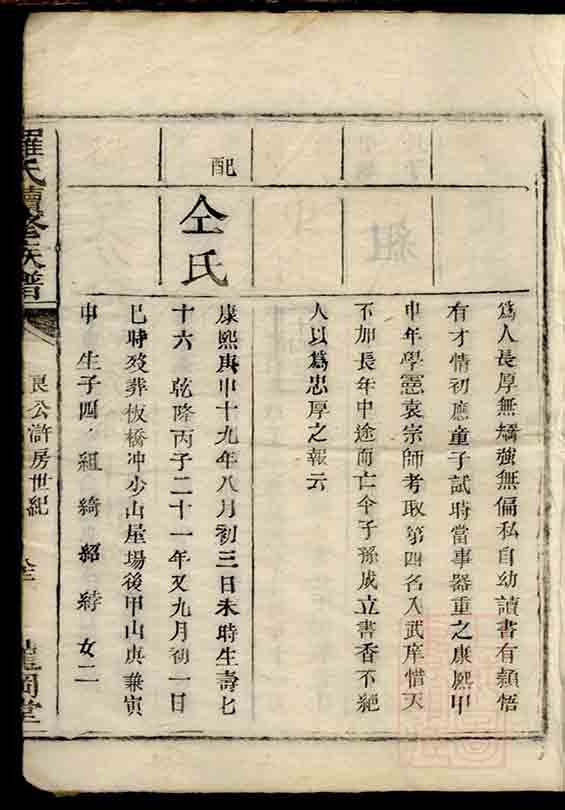 為人長厚無矯強無偏私自幼讀書有頴悟
有才情初應童子試時當事器重之康熙甲
申年學憲袁宗師考取第四名入武庠惜天
不加長年中途而亡今子孫成立書香不絕
人以為忠厚之報云
配
仝氏
康熙庚申十九年八月初三日未時生壽七
十六 乾隆丙子二十一年又九月初一日
巳時歿葬板橋冲少山屋場後甲山庚兼寅
申生子四 組綺紹綍女二
羅氏續修族譜
良公滸房世紀